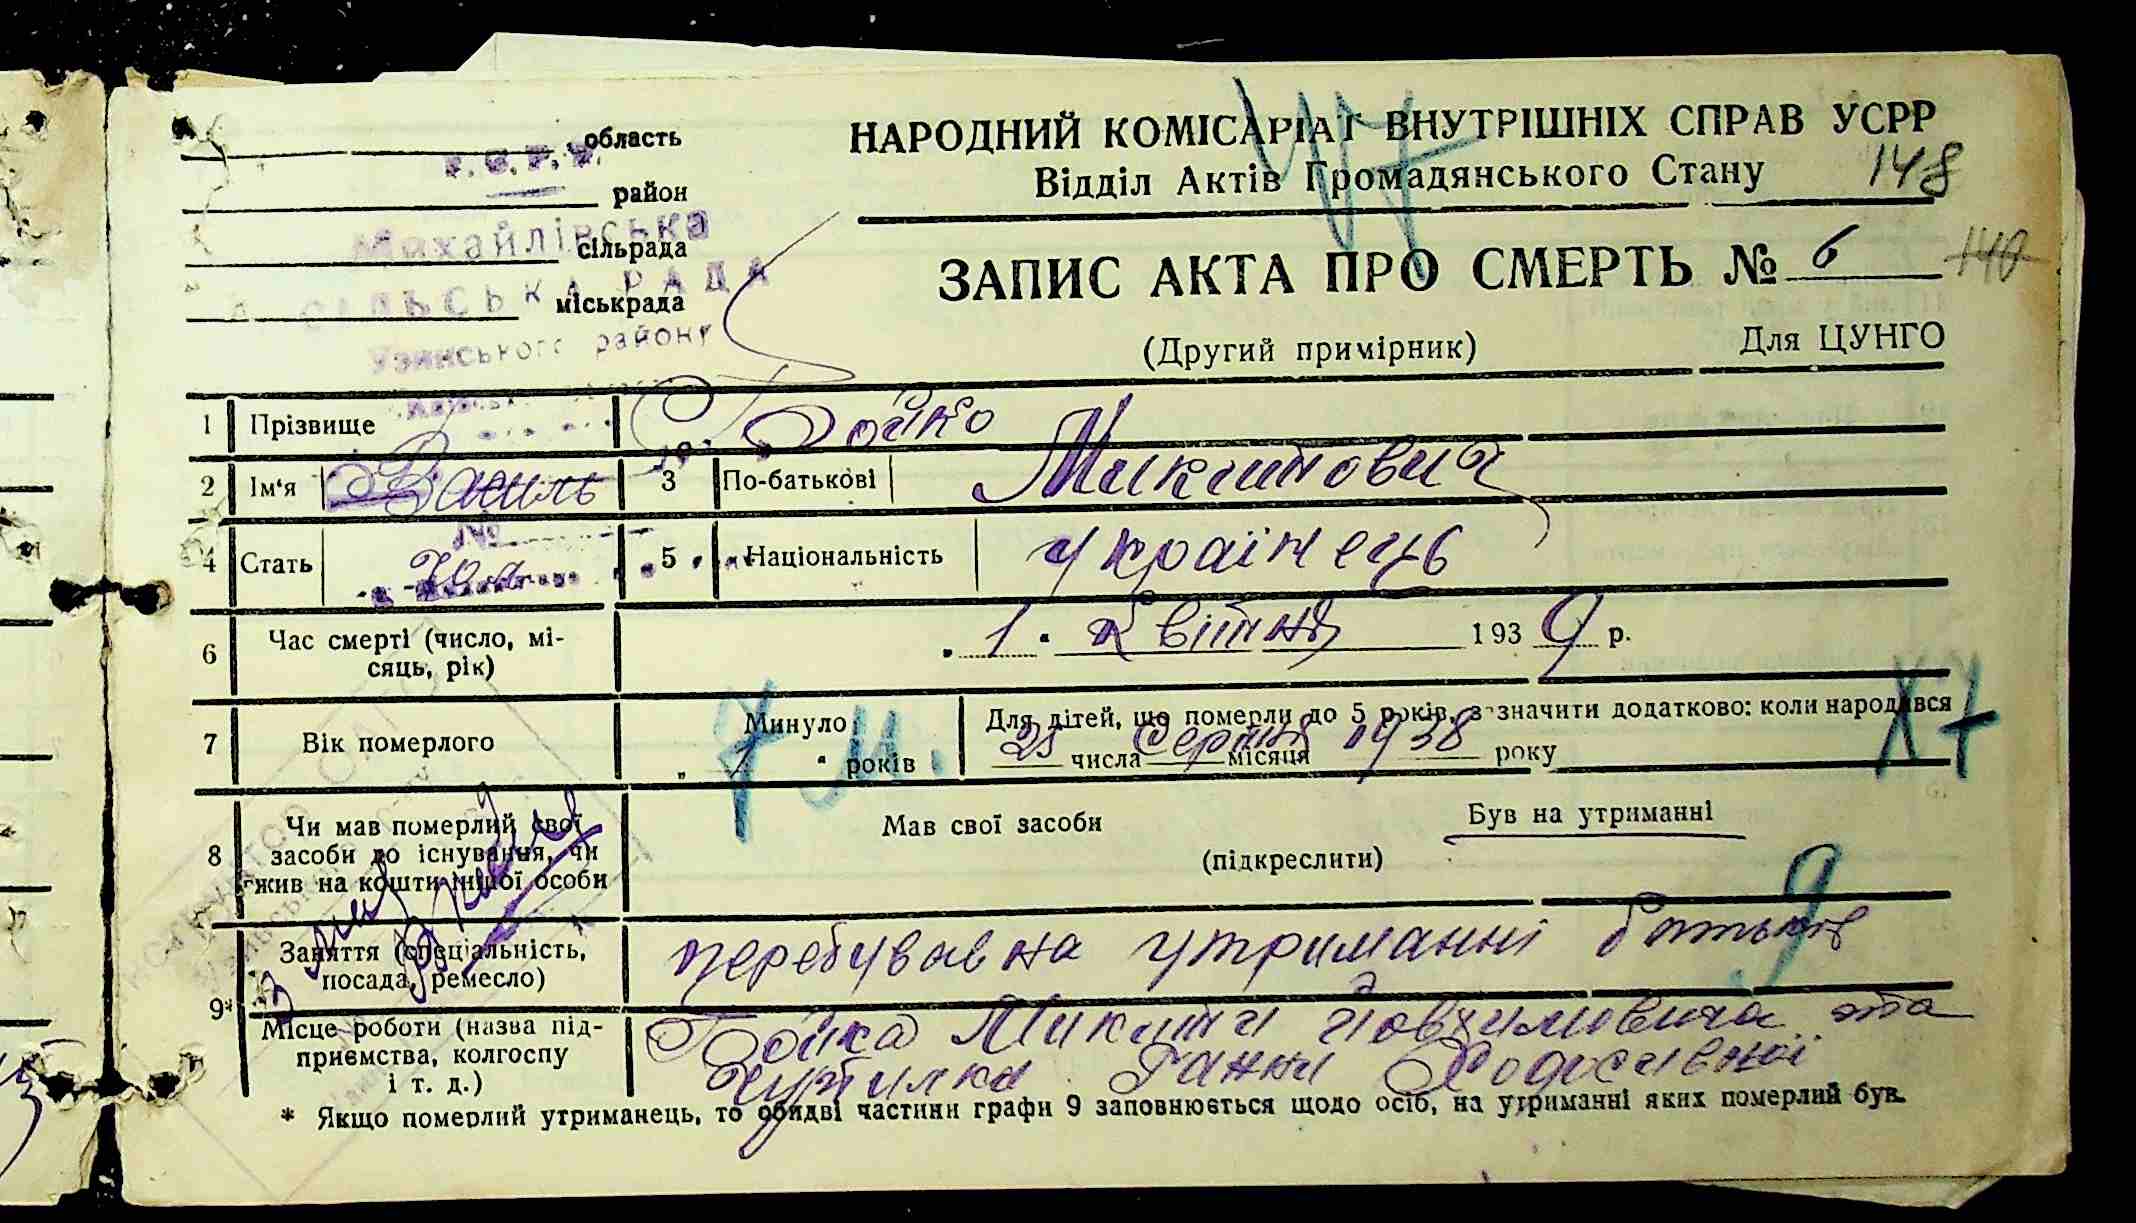 область
район
Михайлівська
сільрада
СІЛЬСЬКА РАДА
міськрада
Узинського району
НАРОДНИЙ КОМІСАРІАТ ВНУТРІШНІХ СПРАВ УСРР
Відділ Актів Громадянського Стану
148
ЗАПИС АКТА ПРО СМЕРТЬ № 6
140
(Другий примірник)
Для ЦУНГО
1 Прізвище Бойко
2 Ім'я Василь 3 По-батькові Микитович
4 Стать 5 Національність Українець
6 Час смерті (число, мі-
сяць, рік) „1" Квітня 1939 р.
7 Вік померлого Минуло „ " років 7 м.
Для дітей, що померли до 5 років, зазначити додатково: коли народився
25 числа Серпня місяця 1938 року
8 Чи мав померлий свої
засоби до існування, чи
жив на кошти іншої особи
Мав свої засоби Був на утриманні
(підкреслити)
9* Заняття (спеціальність,
посада, ремесло) перебував на утриманні батьків
Місце роботи (назва під-
приємства, колгоспу
і т. д.)
Бойка Микити Йовхимовича та
Ганни Ходосівної
* Якщо померлий утриманець, то обидві частини графи 9 заповнюється щодо осіб, на утриманні яких померлий був.